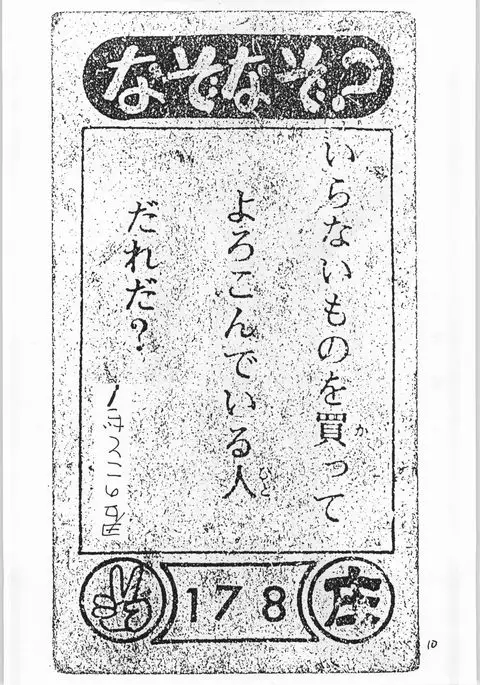 なぞなぞ?
いらないものを買って
か
よろこんでいる人
ひと
だれだ?
178
10